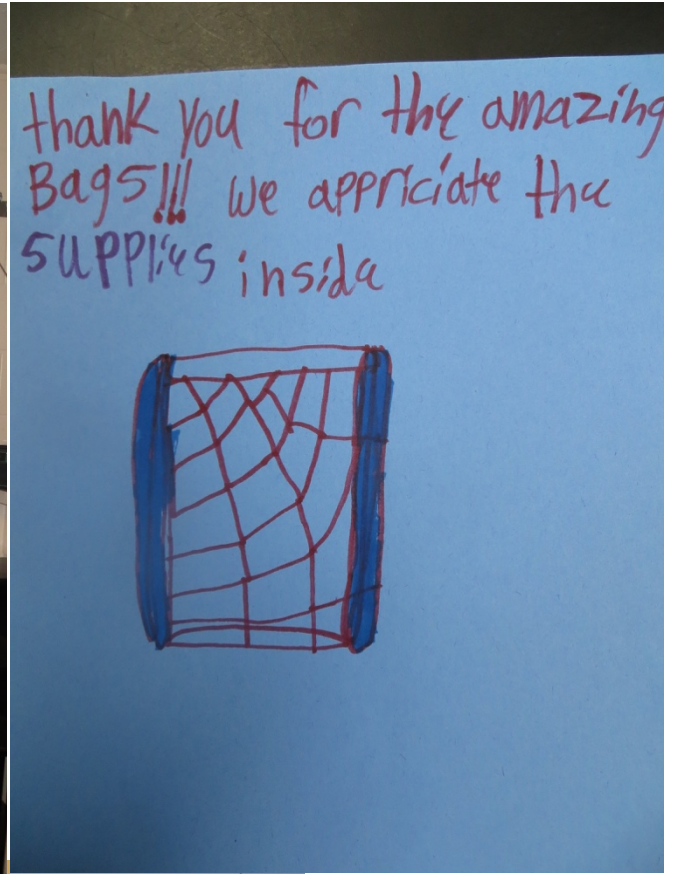 thank you for the amazing
Bags!!! we appriciate the
supplies inside